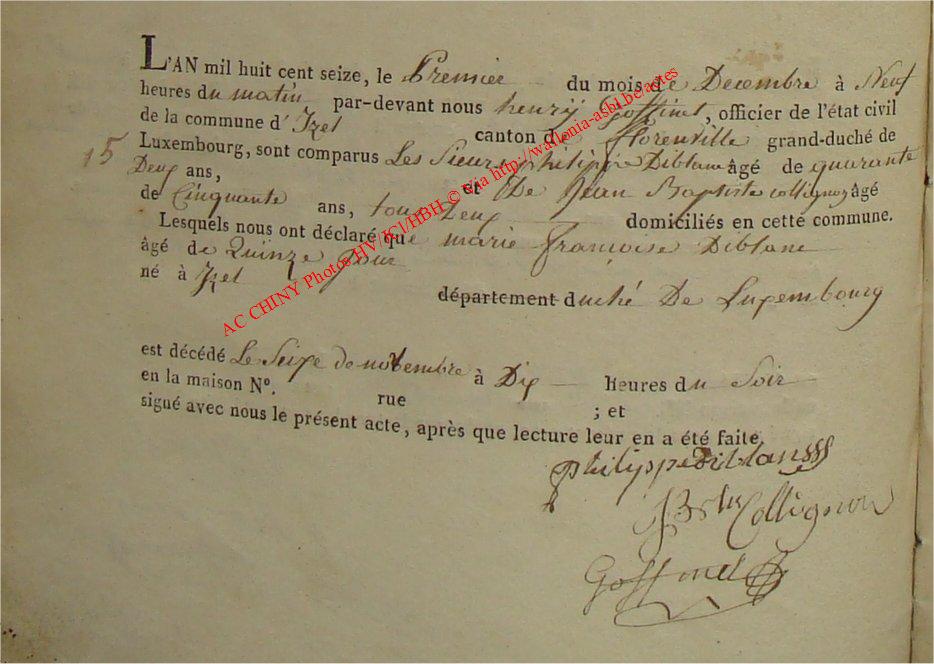 L'AN mil huit cent seize, le Premier du mois de Decembre à Neuf
heures du matin par-devant nous henrÿ Goffinet, officier de l'état civil
de la commune d'Izel canton de florenville grand-duché de
15 Luxembourg, sont comparus Les Sieurs philippe Diblanc âgé de quarante
Deux ans, et De Jean Baptiste collignon âgé
de Cinquante ans, tous Deux domiciliés en cette commune.
Lesquels nous ont déclaré que marie françoise Diblanc
âgé de Quinze jour
né à Izel département duché De Luxembourg
est décédé Le Seize de novembre à Dix heures du Soir
en la maison N°. rue ; et
signé avec nous le présent acte, après que lecture leur en a été faite.
philippe Diblanc
JBte Collignon
Goffinet
AC CHINY Photos HV/JCl/HBH © via http://wallonia-asbl.be/actes